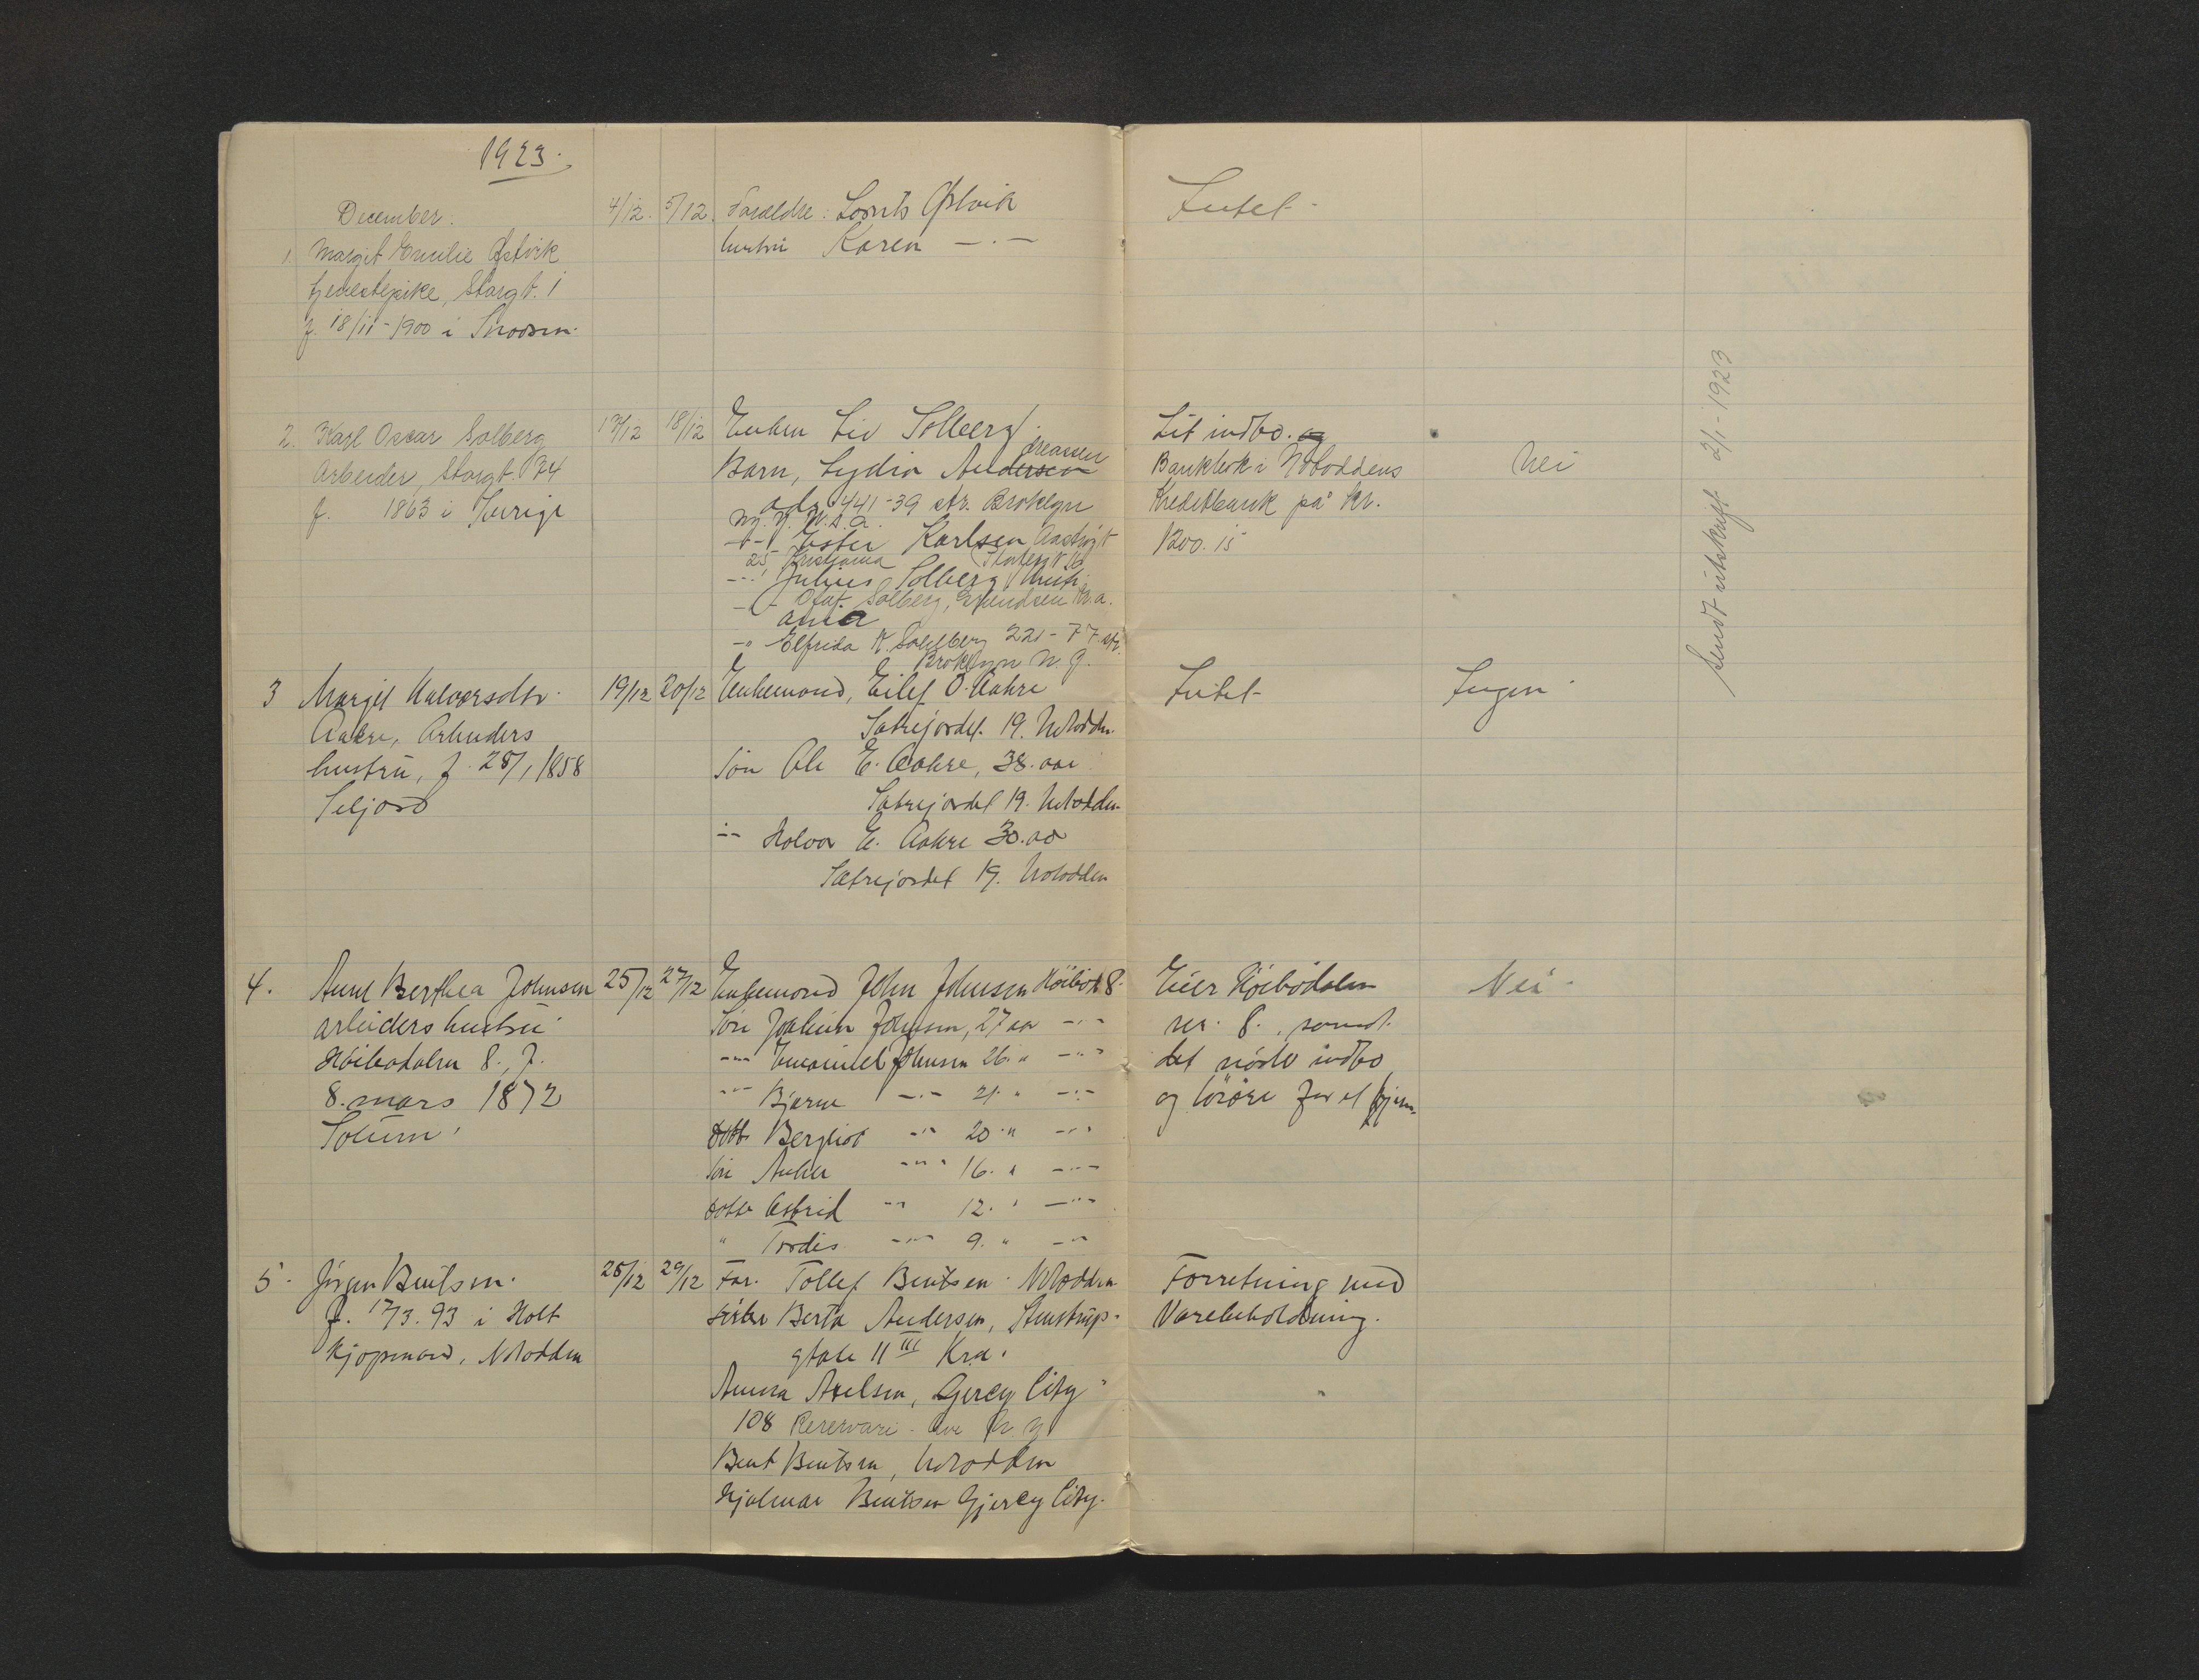 1923.
December.
1. Margit Emilie Østvik
tjenestepike, Storgt. 1
f. 18/11-1900 i
4/12. 5/12.
Foreldre: Lorents Østvik
hustru Karen -"-
Intet
2. Karl Oscar Solberg
Arbeider, Storgt. 74
f. 1863 i Sverige
17/12 18/12
Enken Liv Solberg.
dreassen
Barn, Lydia Andersen
adr. 441-39 str. Broklyn
Ny. Y. U.S.A.
-"- Ester Karlsen
25, Kristiania
-"- Julius Solberg
-"- Olaf Solberg, Kr.a.
-"- Elfrida K. Solberg 221-77 str.
Broklyn N. Y.
Lit indbo. og
Bankbok i Notoddens
Kreditbank på kr.
1200.15
Nei
Sendt utskrift 2/1-1923
3 Margit Halvorsdtr.
Aakre, Arbeiders
hustru, f. 28/1 1858
Seljord
19/12 20/12
Enkemand, Eilef O. Aakre
Sætrejordet 19. Notodden.
Søn Ole E. Aakre, 38. aar
Sætrejordet 19. Notodden
-"- Halvor E. Aakre 30. aar
Sætrejordet 19. Notodden
Intet
Ingen
4. Anne Berthea Johnsen
arbeiders hustru
Høibødalen 8., f.
8. mars 1872
Solum.
25/12 27/12
Enkemand John Johnsen Høibød. 8.
Søn Joakim Johnsen, 27 aar -"-
-"- Emanuel Johnsen 26. " -"-
-"- Bjarne -"- 21. " -"-
Datt. Bergliot -"- 20 " -"-
Søn Anker -"- 16. " -"-
Datter Astrid -"- 12. " -"-
" Tordis -"- 9. " -"-
Eier Høibødalen
nr. 8., samt
det nødv indbo
og løsøre for et hjem.
Nei
5. Jørgen Bentsen.
f. 17/3. 93 i Holt
Kjøpmand, Notodden
26/12 29/12
Far. Tollef Bentsen Notodden
Søster Berta Andersen, Stenstrup-
gtate 11 III Kra.
Anna Axelsen, Gjercy City
108 Reservari Ave N. Y
Bent Bentsen, Notodden
Hjalmar Bentsen Gjercy City.
Forretning med
Varebeholdning.